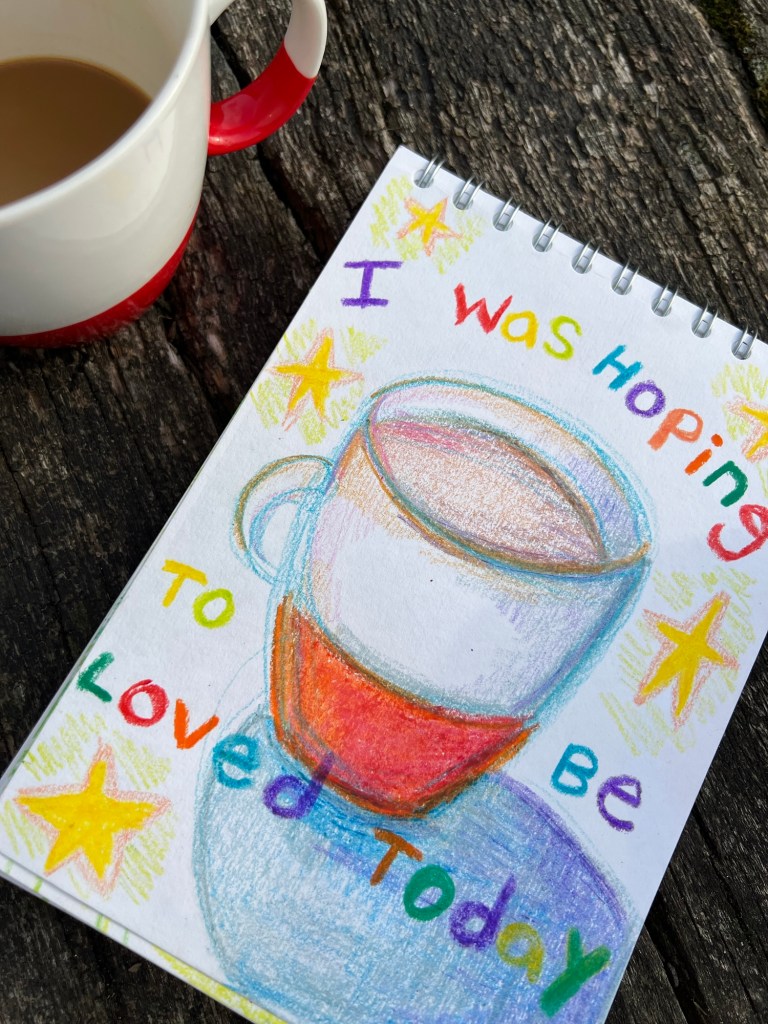 I was Hoping
To Be
Loved
Today